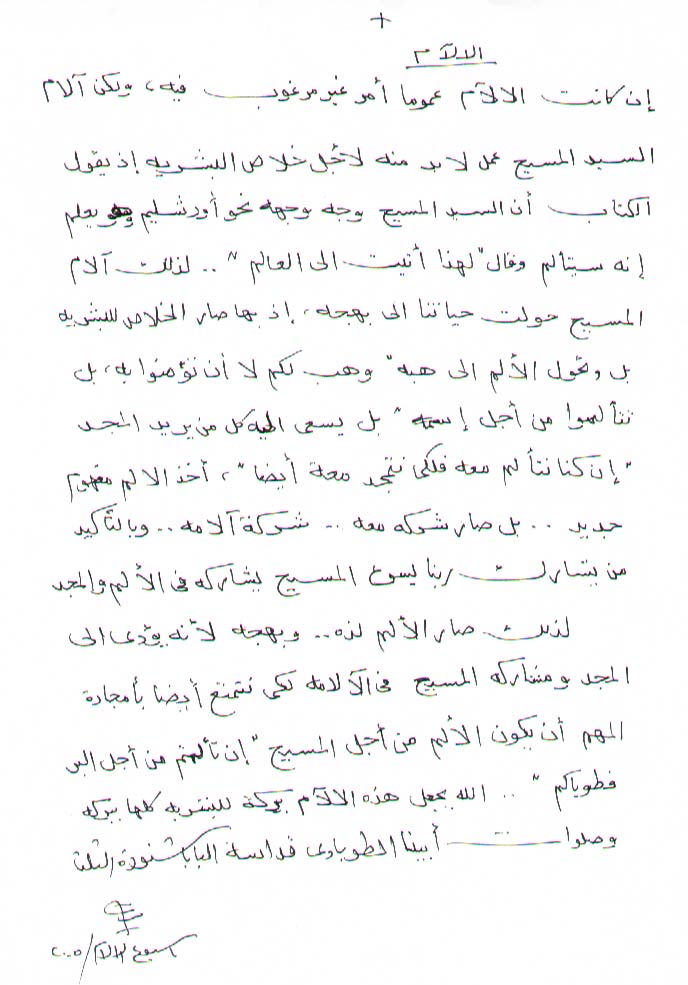 +
الالآم
إن كانت الالآم عموما أمر غير مرغوب فيه، ولكن آلام
السيد المسيح عمل لابد منه لأجل خلاص البشريه إذ يقول
الكتاب أن السيد المسيح وجه وجهه نحو أورشليم وهو يعلم
إنه سيتألم وقال "لهذا أتيت الى العالم" .. لذلك آلام
المسيح حولت حياتنا الى بهجه، إذ بها صار الخلاص للبشريه
بل وتحول الألم الى هبه "وهب لكم لا أن تؤمنوا به، بل
تتألموا من أجل إسمه" بل يسعى اليه كل من يريد المجد
"إن كنا نتألم معه فلكى نتمجد معة أيضا"، أخذ الالم مفهوم
جديد .. بل صار شركه معه .. شركة آلامه .. وبالتأكيد
من يشارك ربنا يسوع المسيح يشاركه فى الألم والمجد
لذلك صار الألم لذه .. وبهجه لأنه يؤدى الى
المجد ومشاركه المسيح فى الآلامه لكى نتمتع أيضا بأمجادة
المهم أن يكون الألم من أجل المسيح "إن تألمتم من أجل البر
فطوباكم" .. الله يجعل هذه الالآم بركة للبشريه كلها ببركه
وصلوات أبينا الطوباوى قداسة البابا شنودة الثالث
اسبوع الالآم/٢٠٠٥